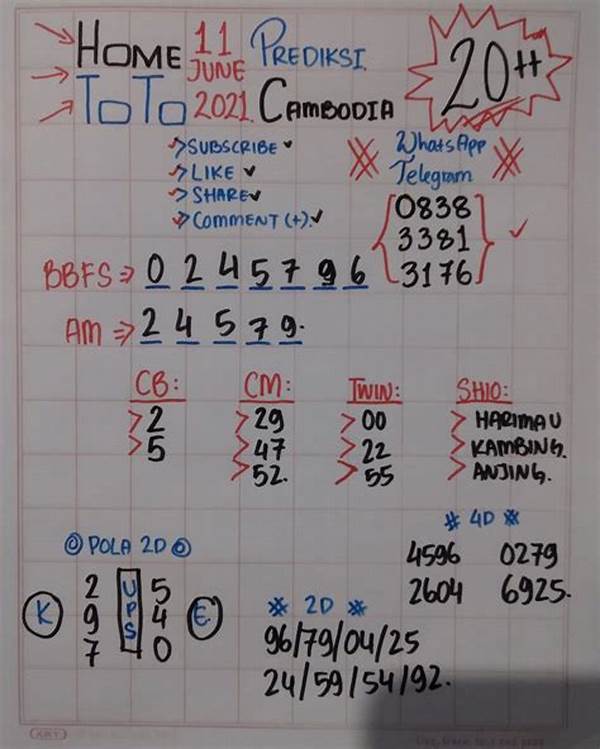 HOME 11 JUNE 2021 PREDIKSI
TOTO CAMBODIA
20++
SUBSCRIBE
LIKE
SHARE
COMMENT (+)
WhatsApp
Telegram
0838
3381
3176
BBFS 0 2 4 5 7 9 6
AM 2 4 5 7 9.
CB:
2
5
CM:
29
47
52.
TWIN:
00
22
55
SHIO:
HARIMAU
KAMBING.
ANJING.
POLA 2D
K 2 9 7
UPS
5 4 0 E
# 4D #
4596 0279
2604 6925.
2D
96/79/04/25
24/59/54/92.
KIKY